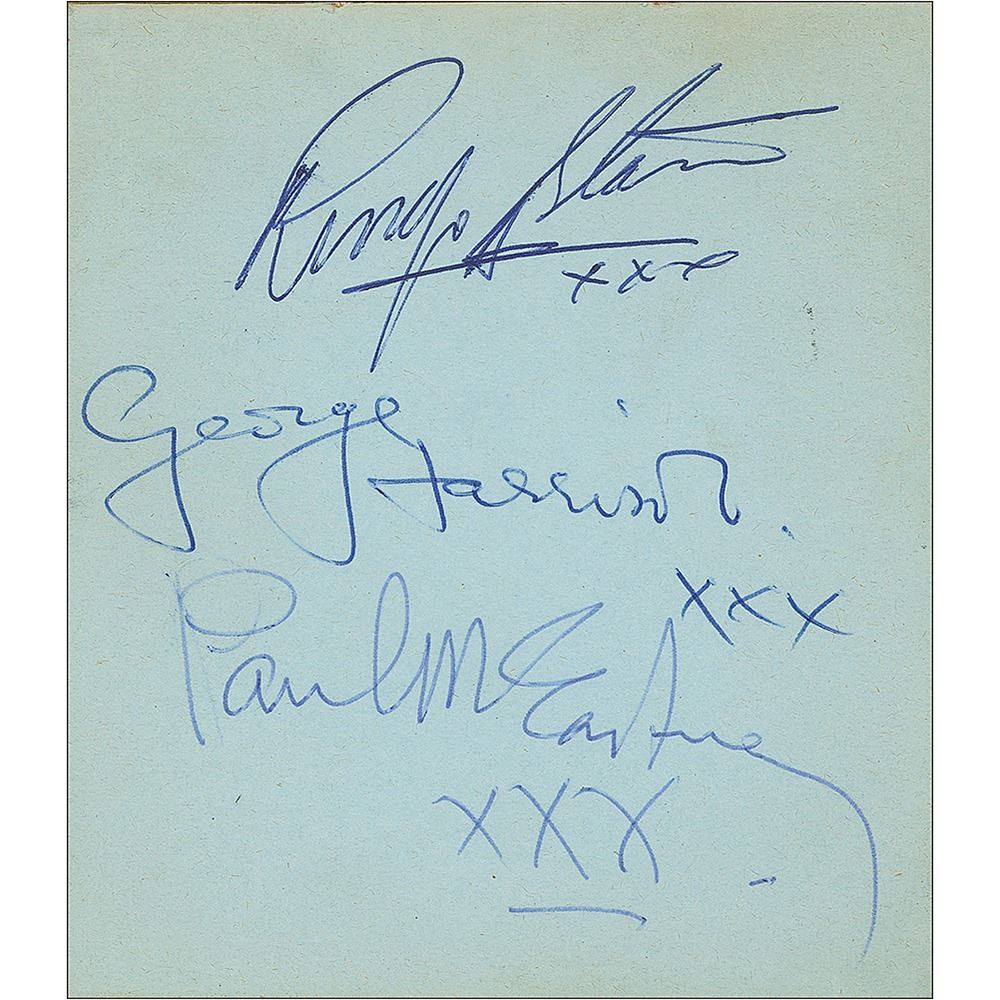 Ringo Starr
xxx
George Harrison.
xxx
Paul McCartney
XXX